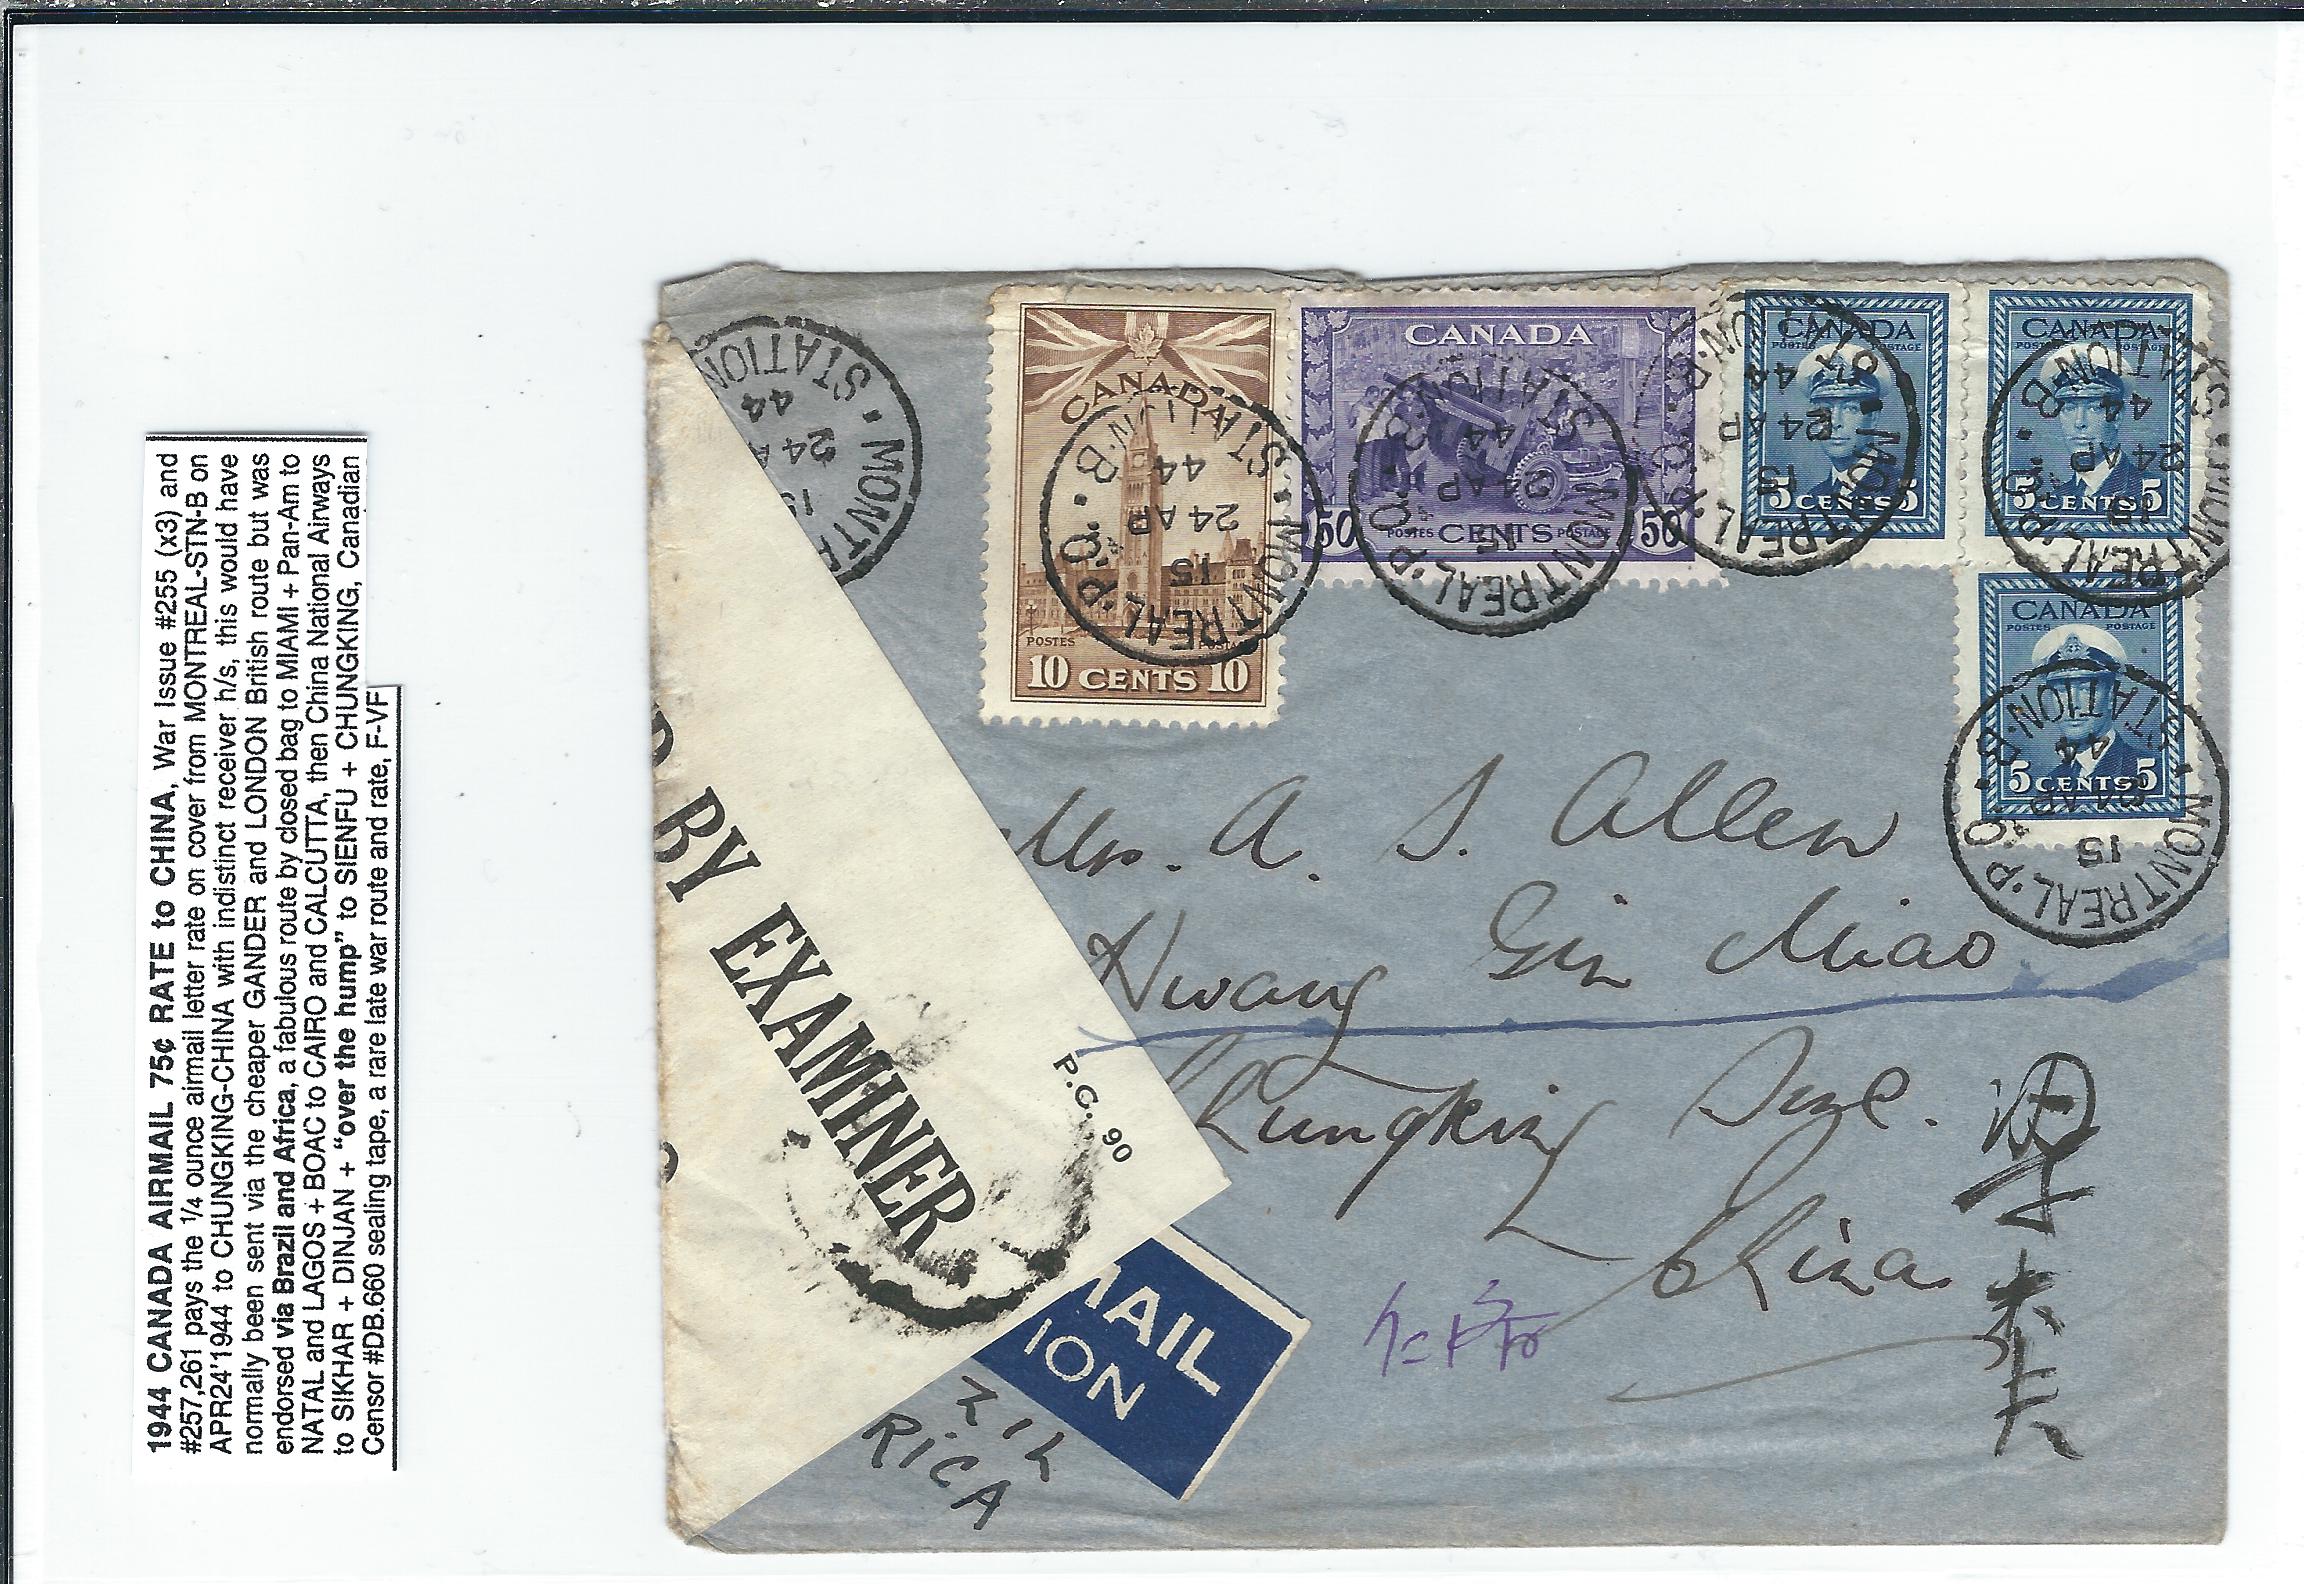 1944 CANADA AIRMAIL 75¢ RATE to CHINA, War Issue #255 (x3) and
#257,261 pays the 1/4 ounce airmail letter rate on cover from MONTREAL-STN-B on
APR24'1944 to CHUNGKING-CHINA with indistinct receiver h/s, this would have
normally been sent via the cheaper GANDER and LONDON British route but was
endorsed via Brazil and Africa, a fabulous route by closed bag to MIAMI + Pan-Am to
NATAL and LAGOS + BOAC to CAIRO and CALCUTTA, then China National Airways
to SIKHAR + DINJAN + "over the hump" to SIENFU + CHUNGKING, Canadian
Censor #DB.660 sealing tape, a rare late war route and rate, F-VF
STATION
44
24 A
15
MONTR
CANADA
POSTES POSTAGE
10 CENTS 10
MONTREAL P.O.
STATION B
15
24 AP
44
CANADA
50 POSTES CENTS POSTAGE 50
MONTREAL P.O.
STATION B
15
24 AP
44
CANADA
POSTES POSTAGE
5 CENTS 5
MONTREAL P.O.
STATION B
15
24 AP
44
CANADA
POSTES POSTAGE
5 CENTS 5
MONTREAL P.O.
STATION B
15
24 AP
44
CANADA
POSTES POSTAGE
5 CENTS 5
MONTREAL P.O.
STATION B
15
24 AP
44
D BY EXAMINER
P.C. 90
Mrs. A. S. Allen
Hwang Gin Miao
Chungking Sze.
China
MAIL
ION
ZIL
RICA